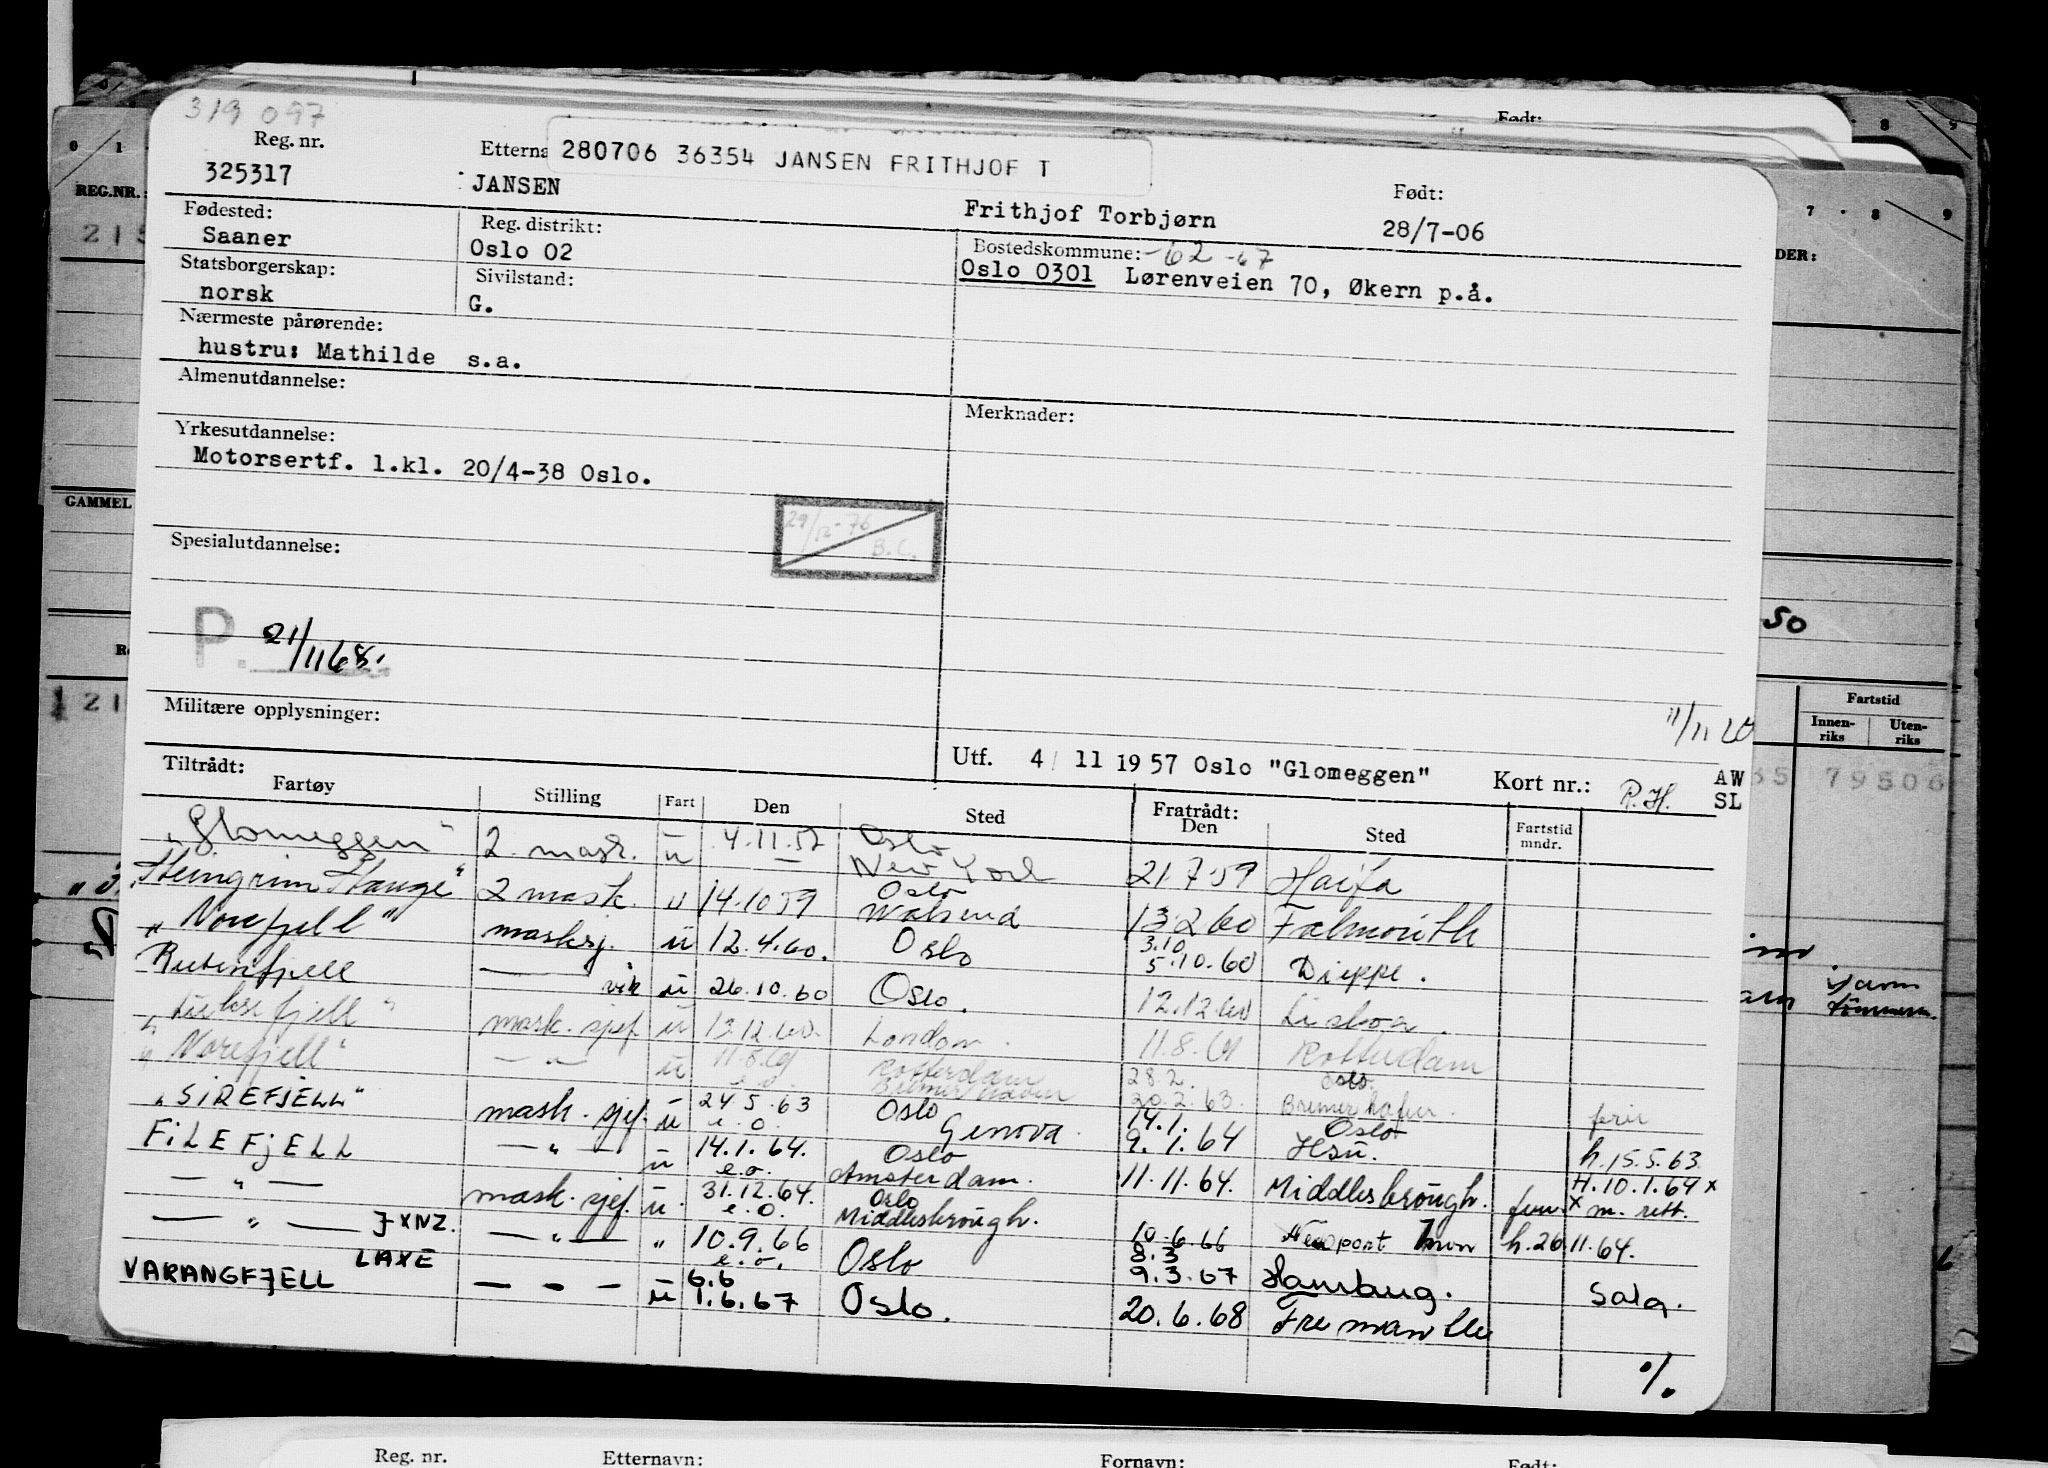 319 097
Reg. nr.
325317
Etterna
280706 36354 JANSEN FRITHJOF T
JANSEN
Frithjof Torbjørn
Født:
28/7-06
Fødested:
Saaner
Reg. distrikt:
Oslo 02
Bostedskommune: -62-67
Oslo 0301 Lørenveien 70, Økern p.å.
Statsborgerskap:
norsk
Sivilstand:
G.
Nærmeste pårørende:
hustru: Mathilde s.a.
Almenutdannelse:
Merknader:
Yrkesutdannelse:
Motorsertf. 1.kl. 20/4-38 Oslo.
29/12-76
B.C.
Spesialutdannelse:
P. 21/1168.
Militære opplysninger:
11/11 20
Utf. 4/11 1957 Oslo "Glomeggen" Kort nr.: R.H. AW
SL
Tiltrådt:
Fartøy Stilling Fart Den Sted Fratrådt: Den Sted Fartstid mndr.
"Glomeggen" 2. mask. u 4.11.57 Oslo
New York 21.7.59 Haifa
"Steingrim Stange" 2 mask. u 14.10.59 Oslo
Walsend 13.2.60 Falmouth
"Norefjell" masksj. u 12.4.60. Oslo 3.10
5.10.60 Dieppe.
Rutenfjell vik u 26.10.60 Oslo. 12.12.60 Lisboa.
mask. sjef u 13.12.60. London. 11.8.61 Rotterdam
"Norefjell" — " — u 11.8.61 Rotterdam 28.2. Oslo.
e.o. Bremerhaven 20.2.63. Bremerhafen.
"SIREFJELL" mask. sjef. u 24.5.63 Oslo 14.1. Oslo ferie
e.o. Genova. 9.1.64 Hsu. h.15.5.63.
FILEFJELL — " — u 14.1.64. Oslo H.10.1.64 x
e.o. Amsterdam. 11.11.64. Middlesbrough. x m. rett.
— " — mask. sjef. u. 31.12.64. Oslo
e.o. Middlesbrough. 10.6.66 Newport Mon h.20.11.64.
— " — JXNZ. — " — " 10.9.66 Oslo 8.3
e.o. 9.3.67 Hamburg. Salg.
LAXE
VARANGFJELL — " — u 6.6
1.6.67 Oslo. 20.6.68 Fremantle
%
Født:
8 9
0 1
REG.NR.:
7 8 9
DER:
GAMMEL
50
Fartstid
Innen-
riks
Uten-
riks
79506
Reg. nr. Etternavn: Fornavn: Født: